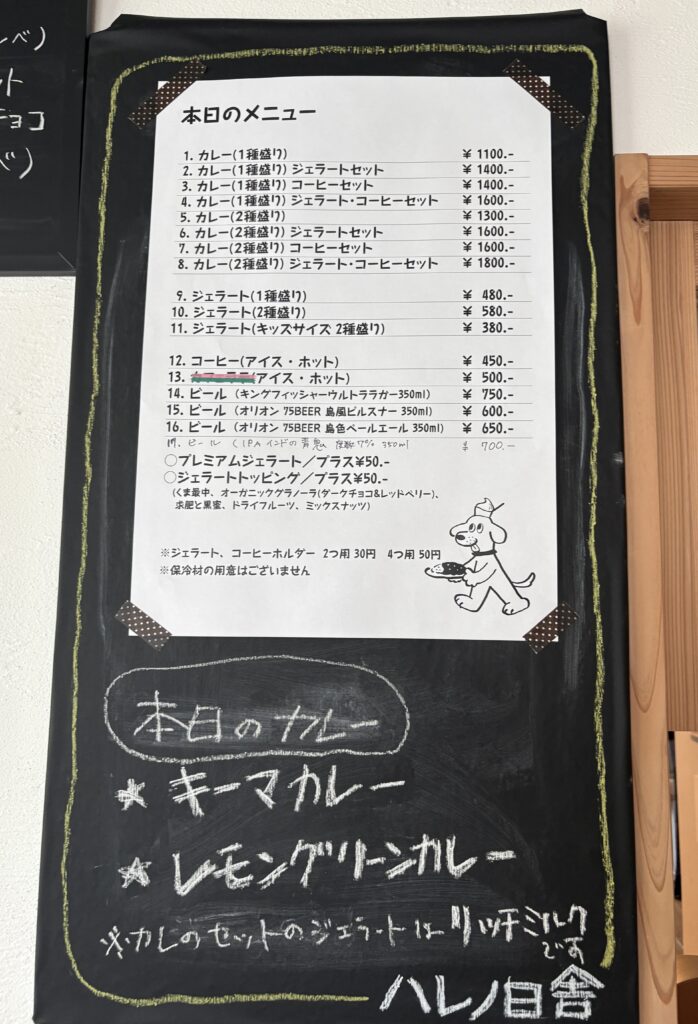 ベ)
ット
チョコ
ベ)
本日のメニュー
1. カレー(1種盛り) ¥ 1100.-
2. カレー(1種盛り) ジェラートセット ¥ 1400.-
3. カレー(1種盛り) コーヒーセット ¥ 1400.-
4. カレー(1種盛り) ジェラート・コーヒーセット ¥ 1600.-
5. カレー(2種盛り) ¥ 1300.-
6. カレー(2種盛り) ジェラートセット ¥ 1600.-
7. カレー(2種盛り) コーヒーセット ¥ 1600.-
8. カレー(2種盛り) ジェラート・コーヒーセット ¥ 1800.-
9. ジェラート(1種盛り) ¥ 480.-
10. ジェラート(2種盛り) ¥ 580.-
11. ジェラート(キッズサイズ 2種盛り) ¥ 380.-
12. コーヒー(アイス・ホット) ¥ 450.-
13. (アイス・ホット) ¥ 500.-
14. ビール (キングフィッシャーウルトララガー350ml) ¥ 750.-
15. ビール (オリオン 75BEER 島風ピルスナー 350ml) ¥ 600.-
16. ビール (オリオン 75BEER 島色ペールエール 350ml) ¥ 650.-
17. ビール (IPA インドの青鬼 7% 350ml ¥ 700.-
○プレミアムジェラート/プラス¥50.-
○ジェラートトッピング/プラス¥50.-
(くま最中、オーガニックグラノーラ(ダークチョコ&レッドベリー)、
求肥と黒蜜、ドライフルーツ、ミックスナッツ)
※ジェラート、コーヒーホルダー 2つ用 30円 4つ用 50円
※保冷材の用意はございません
本日のカレー
★ キーマカレー
★ レモングリーンカレー
※カレーのセットのジェラートはリッチミルク
です
ハレノ日舎